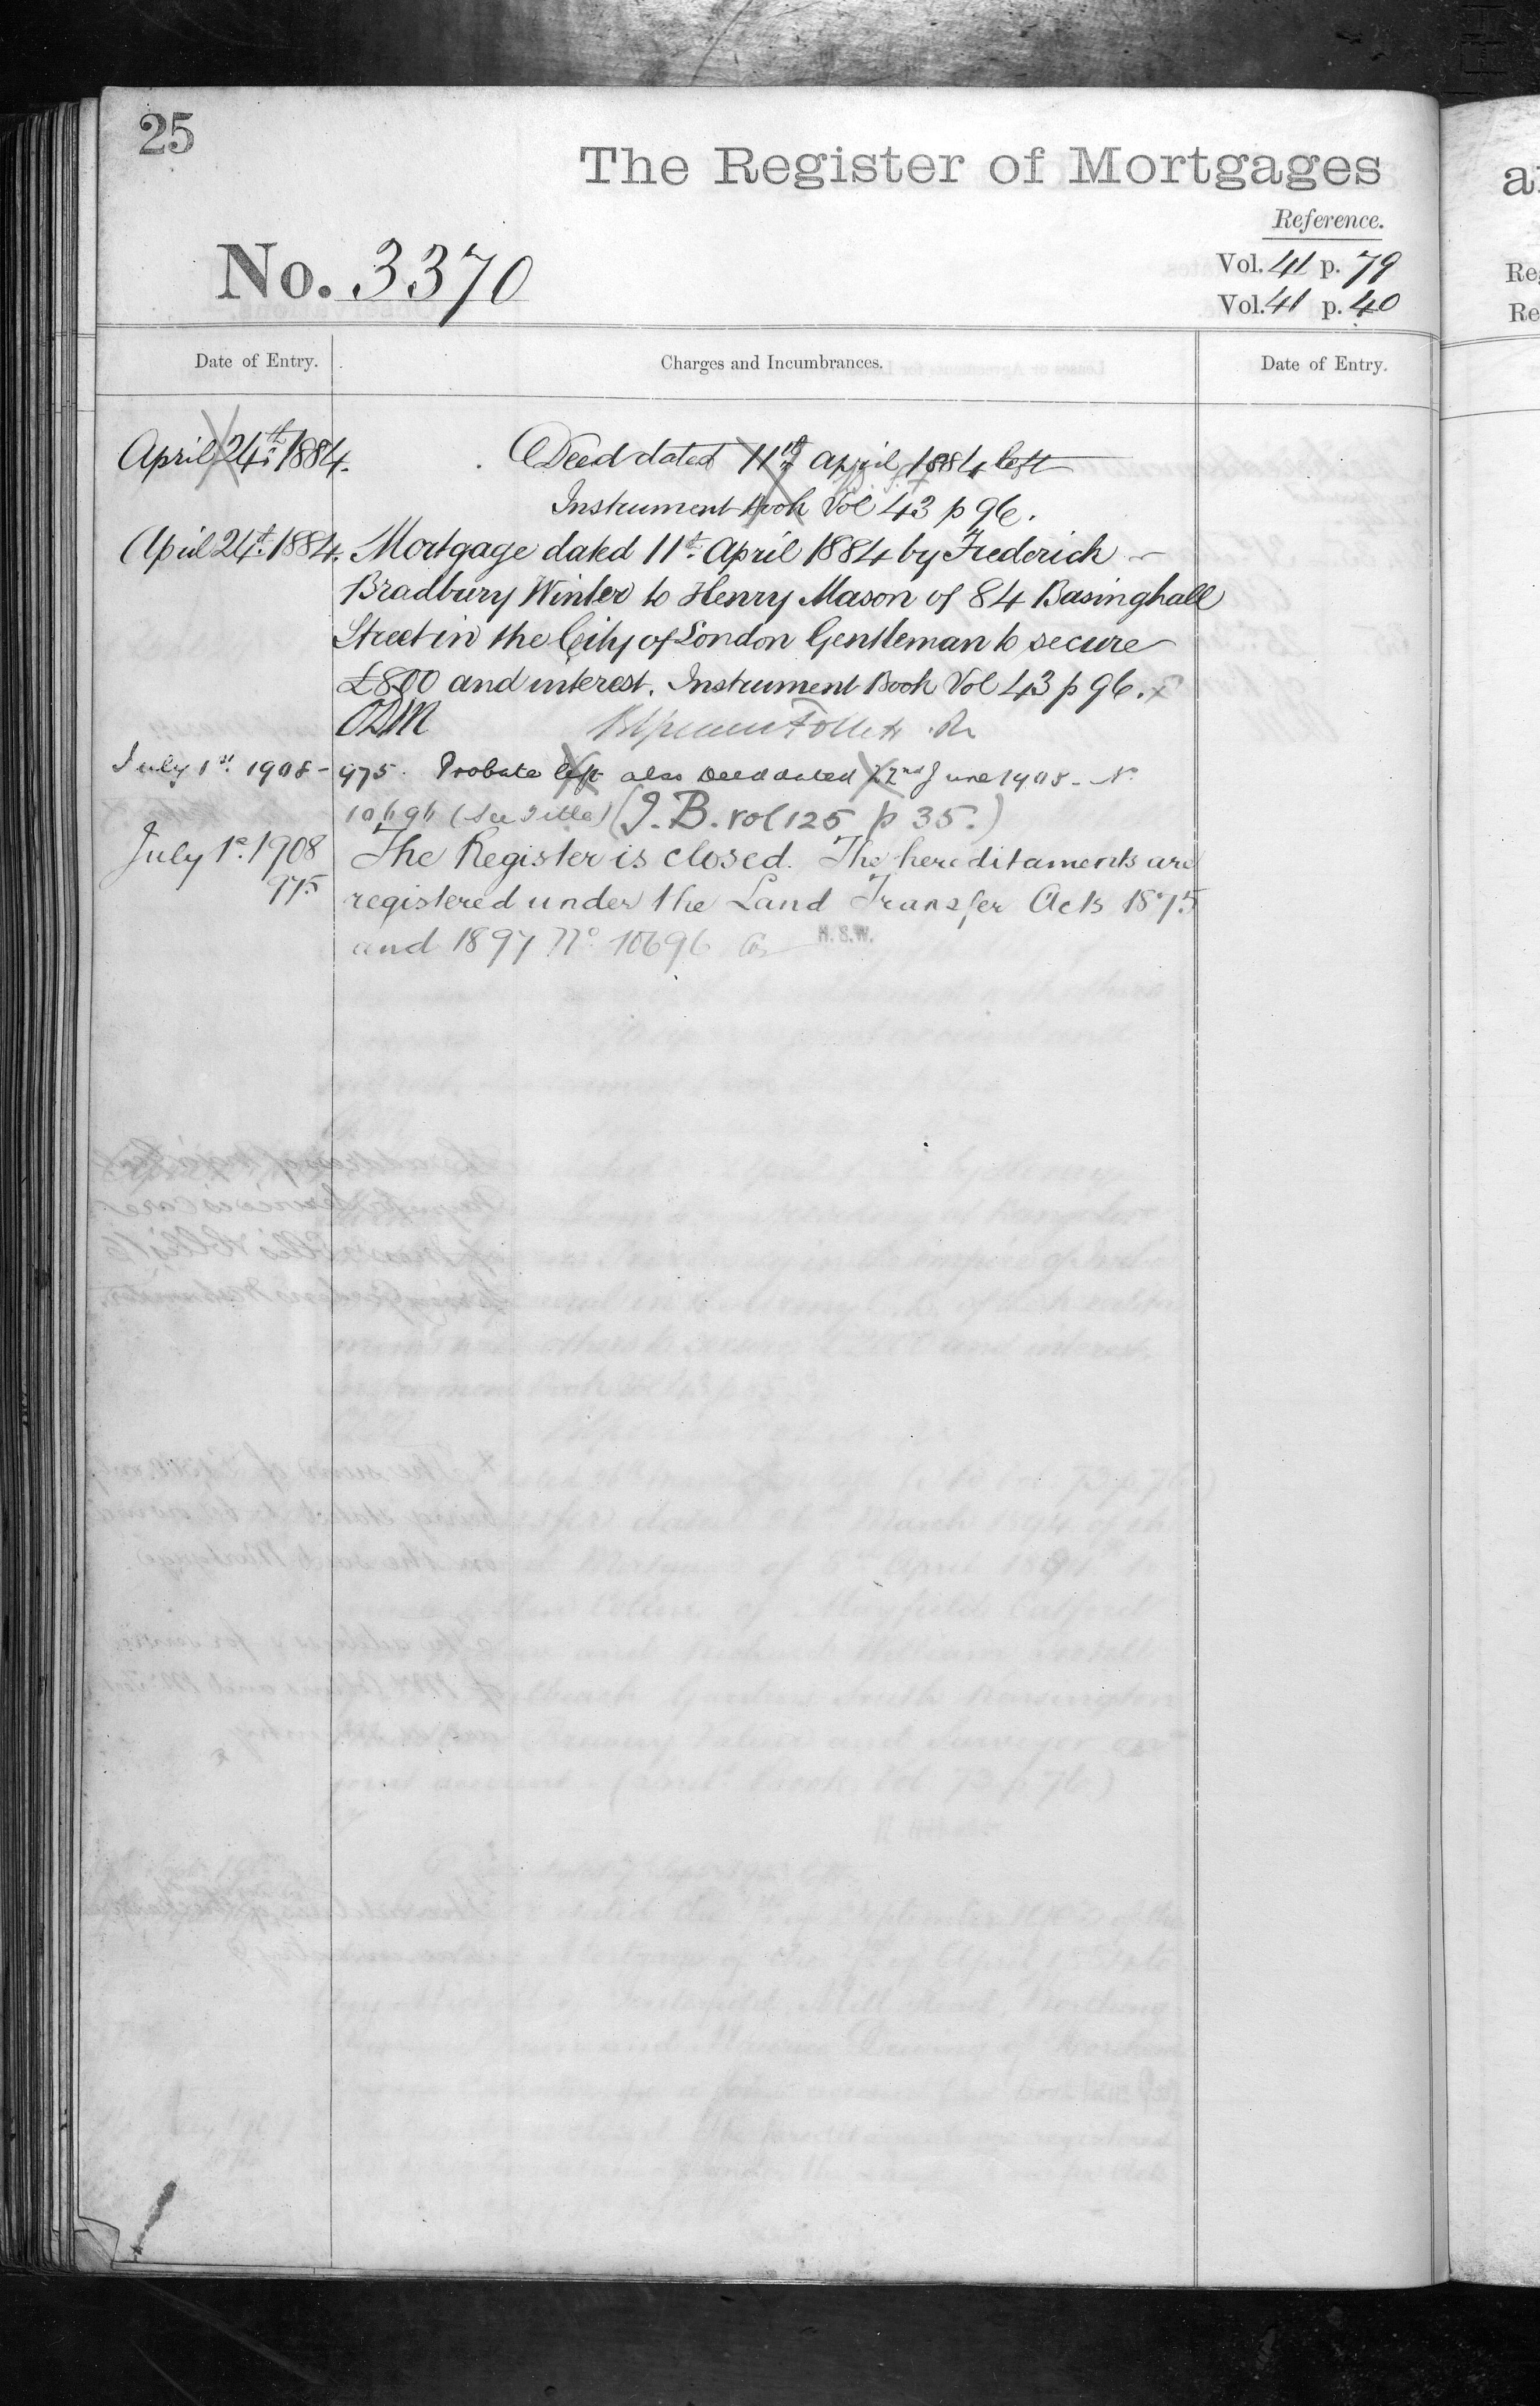 25
The Register of Mortgages
Reference.
No. 3370
Vol. 41 p. 79
Vol. 41 p. 40
Date of Entry.
Charges and Incumbrances.
Date of Entry.
April 24th 1884.
Deed dated 11th April 1884 left
Instrument Book Vol 43 p 96.
April 24th 1884. Mortgage dated 11th April 1884 by Frederick
Bradbury Winter to Henry Mason of 84 Basinghall
Street in the City of London Gentleman to secure
£800 and interest. Instrument Book Vol 43 p 96.
July 1st 1908 - 975. Probate left also Deed dated 22nd June 1908 - No
10696 (See Title) (I.B. vol 125 p 35.)
July 1st 1908 The Register is closed. The hereditaments are
975 registered under the Land Transfer Acts 1875
and 1897 No 10696 H.S.W.
a
Re
Re